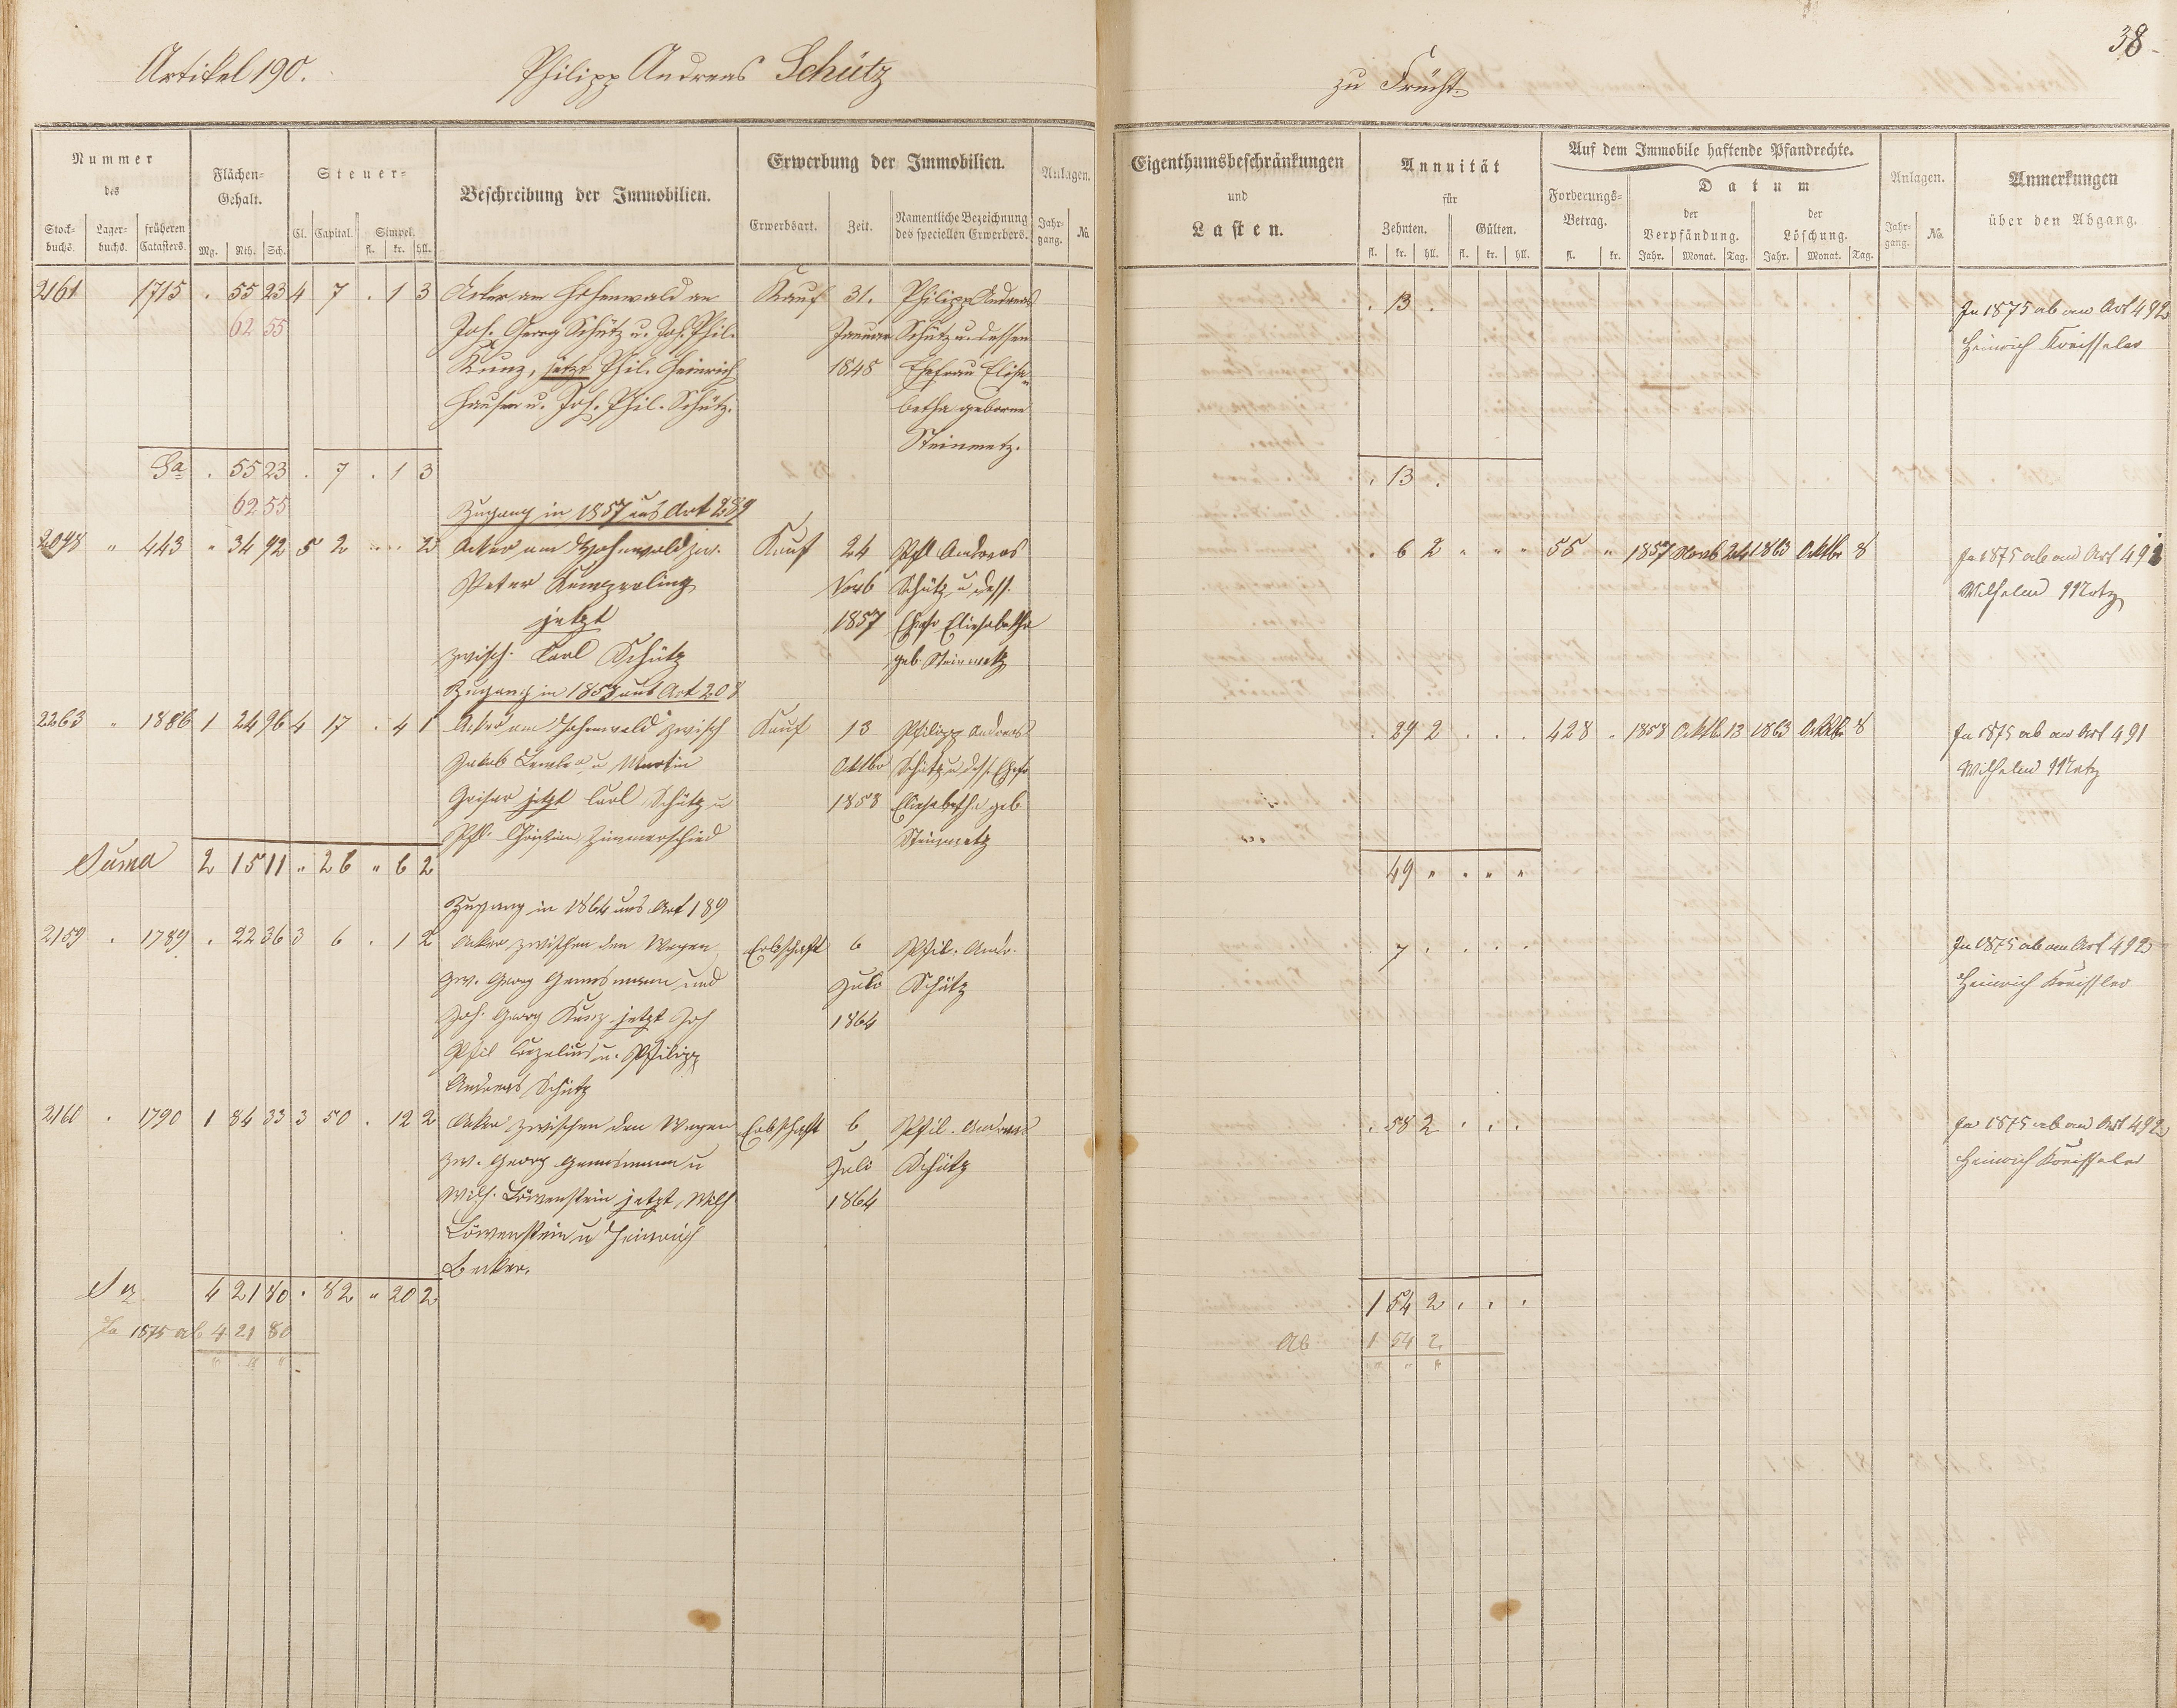 38.
Artikel 190. Philipp Andreas Schütz zu Frücht.
Nummer des
Stock-buchs. Lager-buchs. früheren Catasters.
Flächen-Gehalt.
Mg. Rth. Sch.
Steuer-
Cl. Capital. Simpel.
fl. kr. hll.
Beschreibung der Immobilien.
Erwerbung der Immobilien.
Erwerbsart. Zeit. Namentliche Bezeichnung des speciellen Erwerbers.
Anlagen.
Jahr-gang. No.
Eigenthumsbeschränkungen und Lasten.
Annuität für
Zehnten. Gülten.
fl. kr. hll. fl. kr. hll.
Auf dem Immobile haftende Pfandrechte.
Forderungs-Betrag.
fl. kr.
Datum
der Verpfändung. der Löschung.
Jahr. Monat. Tag. Jahr. Monat. Tag.
Anlagen.
Jahr-gang. No.
Anmerkungen über den Abgang.
2161 1715 . 55 23 4 7 . 1 3 Acker am Hohenwald an Kauf 31. Philipp Andreas . 13 . In 1875 ab an Art 492
62 55 Joh. Georg Schütz u. Joh. Phil. Januar Schütz u. dessen Heinrich Kreisseler
Kunz, jetzt Phil. Heinrich 1848 Ehefrau Elisa-
Hauser u. Joh. Phil. Schütz. betha geborne
Steinmetz.
Sa . 55 23 . 7 . 1 3 . 13 .
62 55
Zugang in 1857 aus Art 289
2098 " 443 " 34 92 5 2 . . 2 Acker am Hohnwald zw. Kauf 24 Phl Andreas . 6 2 " " " 55 " 1857 Novb 24 1863 Oktbr 8 In 1875 ab an Art 491
Peter Novb Schütz u dess. Wilhelm Motz
jetzt 1857 Ehefr Eliesabetha
zwisch. Carl Schütz geb. Steinmetz
Zugang in 1858 aus Art 208
2263 " 1886 1 24 96 4 17 . 4 1 Acker am Hohenwald zwisch Kauf 13 Philipp Andreas . 29 2 . . . 428 . 1858 Oktb 13 1863 Oktbr 8 In 1875 ab an Art 491
Jakob u Martin Oktbr Schütz u dess Ehefr Wilhelm Motz
jetzt Carl Schütz u 1858 Eliesabetha geb
Phl. Christian Zimmerschied Steinmetz
Suma 2 15 11 " 26 " 6 2 49 " " " "
Zugang in 1864 aus Art 189
2159 . 1789 . 22 36 3 6 . 1 2 Acker zwischen den Wegen Erbschaft 6 Phil. Andr. 7 . . . . In 1875 ab an Art 492
zw. Georg und Juli Schütz Heinrich Kreissler
Joh. Georg Kunz jetzt Joh 1864
Phil u. Philipp
Andreas Schütz
2160 . 1790 1 84 33 3 50 . 12 2 Acker zwischen den Wegen Erbschaft 6 Phil. Andreas . 58 2 . . . In 1875 ab an Art 492
zw. Georg u Juli Schütz Heinrich Kreisseler
Wilh. Löwenstein jetzt Wilh 1864
Löwenstein u Heinrich
Becker.
Sa. 4 21 80 . 82 " 20 2 1 54 2 . . .
In 1875 ab 4 21 80 Ab 1 54 2
" " " " " "